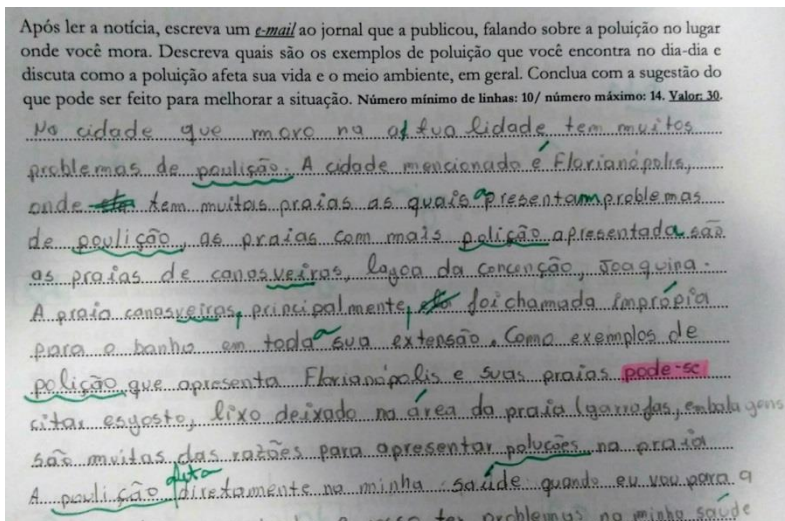 Após ler a notícia, escreva um e-mail ao jornal que a publicou, falando sobre a poluição no lugar
onde você mora. Descreva quais são os exemplos de poluição que você encontra no dia-dia e
discuta como a poluição afeta sua vida e o meio ambiente, em geral. Conclua com a sugestão do
que pode ser feito para melhorar a situação. Número mínimo de linhas: 10/ número máximo: 14. Valor: 30.
Na cidade que moro na atualidade tem muitos
problemas de poulição. A cidade mencionada é Florianópolis,
onde tem muitas praias as quais apresentam problemas
de poulição, as praias com mais polição apresentada são
as praias de canasveiras, lagoa da Concenção, Joaquina.
A praia canasveiras, principalmente, foi chamada imprópia
para o banho em toda a sua extensão. Como exemplos de
polição que apresenta Florianópolis e suas praias pode-se
citar esgosto, lixo deixado na área da praia (garrafas, embalagens
são muitas das razões para apresentar poluções na praia
A poulição afeta diretamente na minha saúde quando eu vou para a
ter problemas na minha saúde